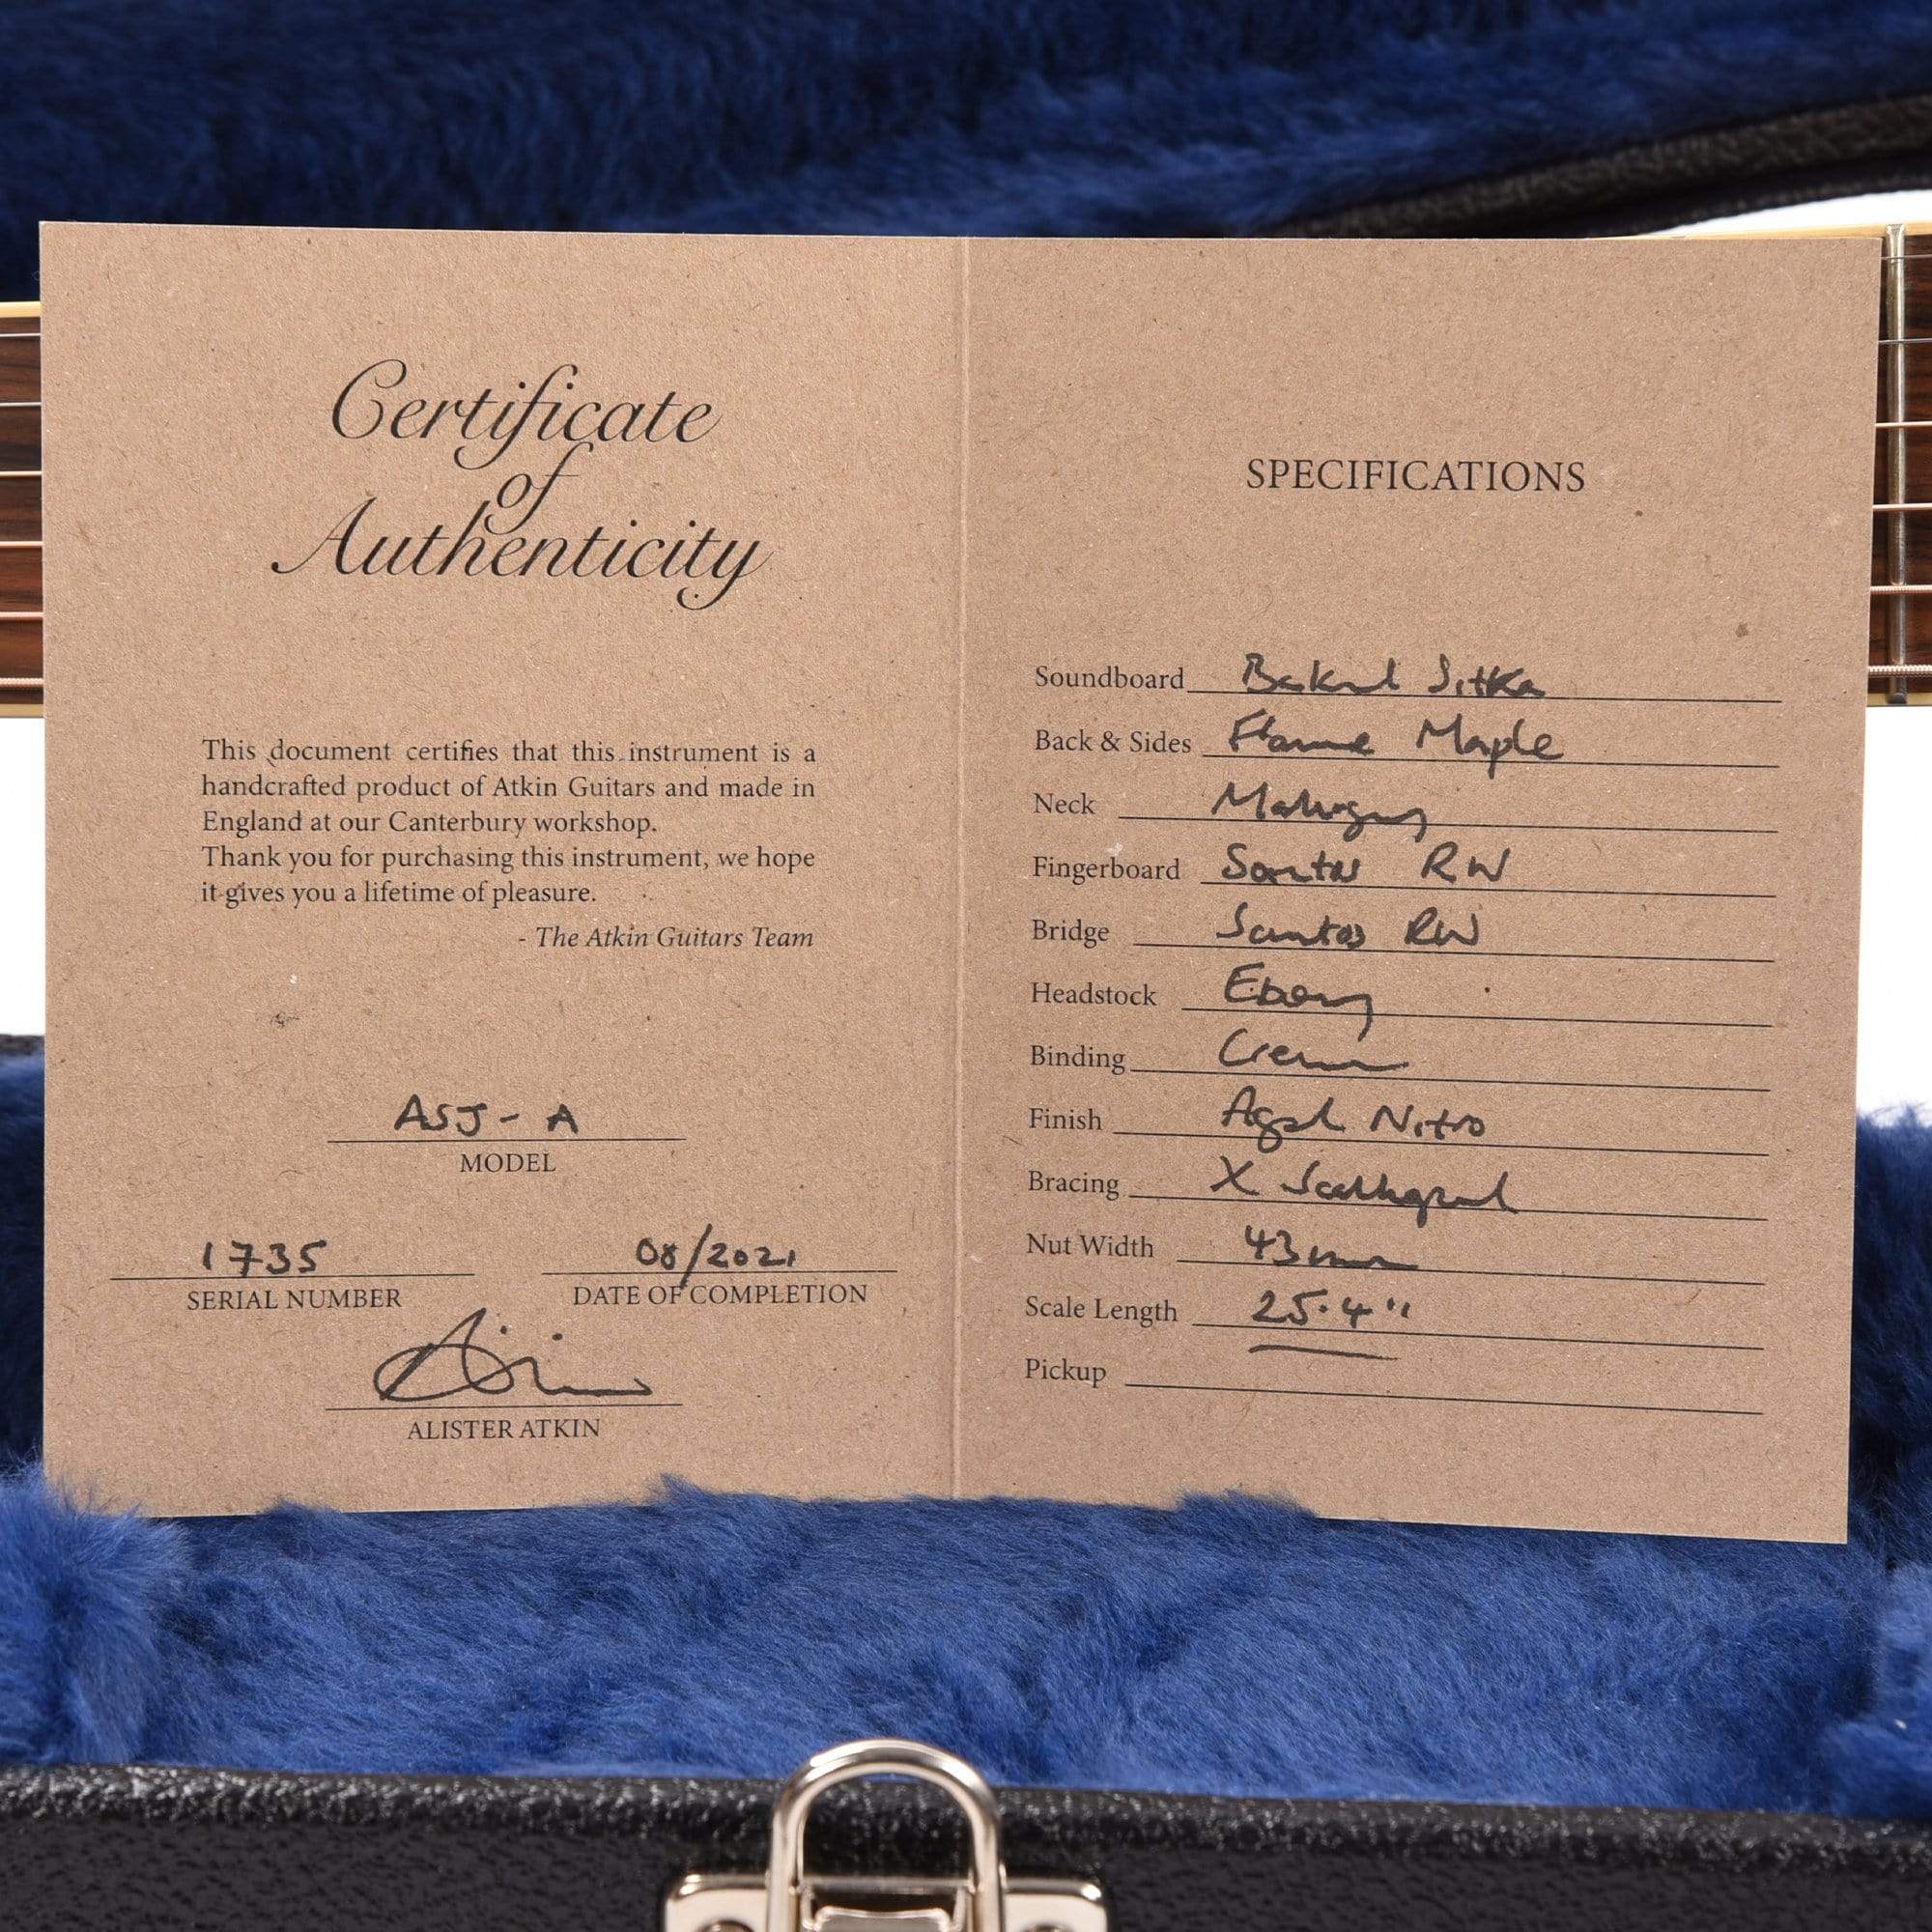 Certificate
of
Authenticity
This document certifies that this instrument is a
handcrafted product of Atkin Guitars and made in
England at our Canterbury workshop.
Thank you for purchasing this instrument, we hope
it gives you a lifetime of pleasure.
- The Atkin Guitars Team
ASJ-A
MODEL
1735
SERIAL NUMBER
08/2021
DATE OF COMPLETION
ALISTER ATKIN
SPECIFICATIONS
Soundboard Baked Sitka
Back & Sides Flame Maple
Neck Mahogany
Fingerboard Santos RW
Bridge Santos RW
Headstock Ebony
Binding Cream
Finish Aged Nitro
Bracing X Scalloped
Nut Width 43mm
Scale Length 25.4"
Pickup